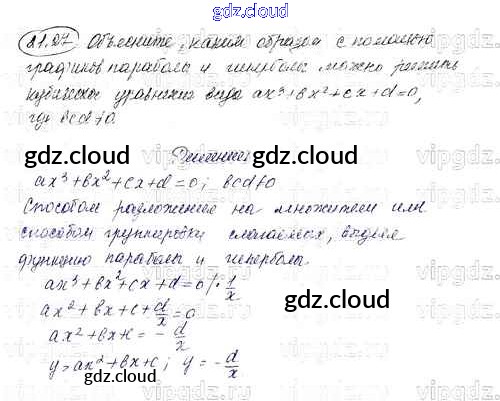 gdz.cloud
21.27 Объясните, каким образом с помощью
графиков параболы и гиперболы можно решить
кубическое уравнение вида ax³+bx²+cx+d=0,
где bcd≠0.
gdz.cloud gdz.cloud
Решение:
ax³+bx²+cx+d=0; bcd≠0
Способом разложения на множители или
способом группировки слагаемых, выделя
функцию параболы и гиперболы.
ax³+bx²+cx+d=0 |·1/x
ax²+bx+c+d/x=0
gdz.cloud gdz.cloud
ax²+bx+c=-d/x
y=ax²+bx+c; y=-d/x
gdz.cloud
vipgdz